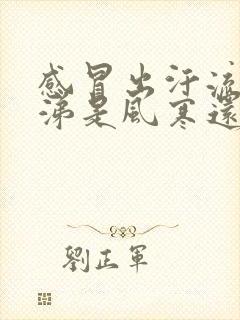 感冒出汗流
涕是風寒還
劉正軍